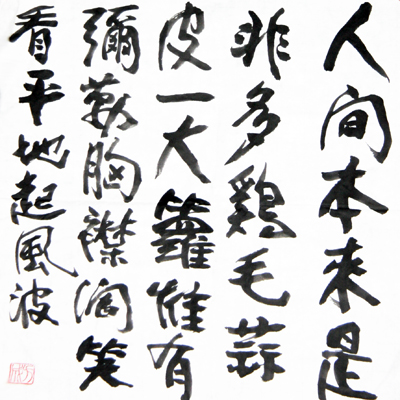 人間本来是
非多鷄毛蒜
皮一大籮惟有
彌勒胸襟闊笑
看平地起風波